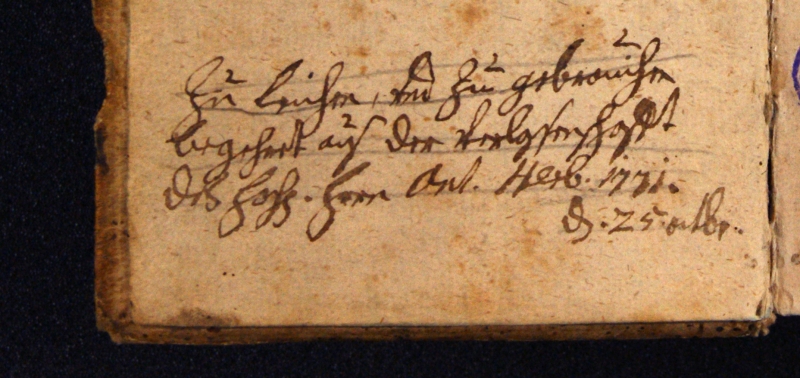 Zu leichen, und Zu gebrauchen
begehret auß der verlassenschafft
deß hoch. herrn Ant. Herb. 1771.
d. 25 octbr.